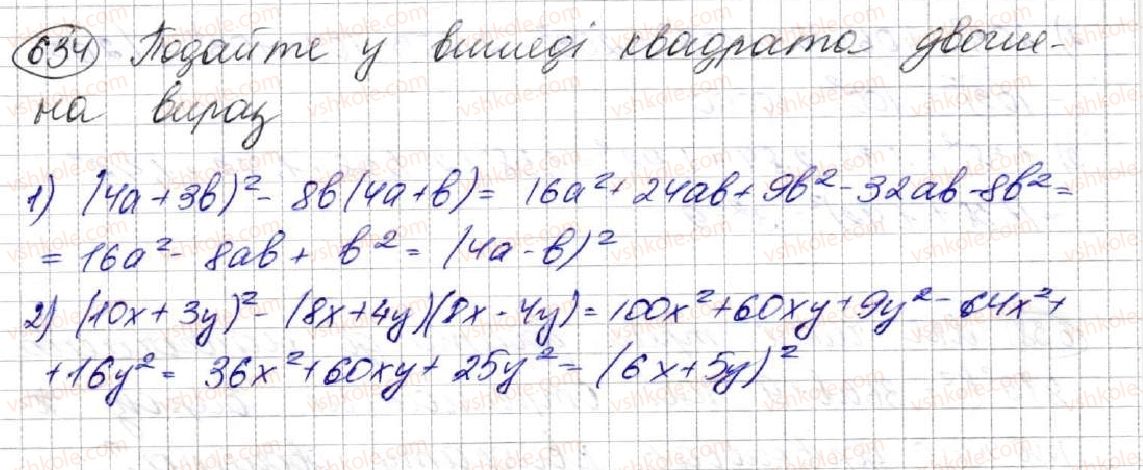 634 Подайте у вигляді квадрата двочле-
на вираз
1) (4a + 3b)² - 8b(4a+b) = 16a² + 24ab + 9b² - 32ab - 8b² =
= 16a² - 8ab + b² = (4a - b)²
2) (10x + 3y)² - (8x+4y)(8x - 4y) = 100x² + 60xy + 9y² - 64x² +
+16y² = 36x² + 60xy + 25y² = (6x+5y)²